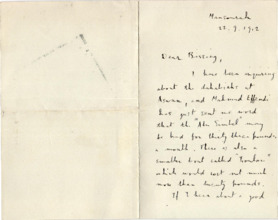 Mansourah
27.9.1912
Dear Bessing,
I have been enquiring
about the dahabiehs at
Aswan, and Mahmoud Effendi
has just sent me word
that the "Abu Simbel" may
be had for thirty three pounds
a month. There is also a
smaller boat called "London"
which would cost not much
more than twenty pounds.
If I hear about a good